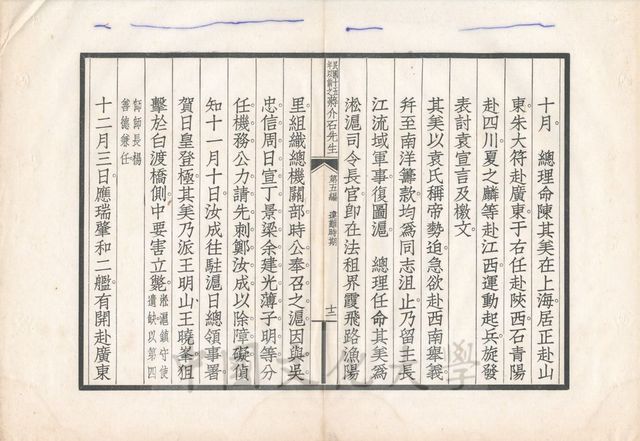 十月　總理命陳其美在上海居正赴山
東朱大符赴廣東于右任赴陝西石青陽
赴四川夏之麟等赴江西運動起兵旋發
表討袁宣言及檄文
其美以袁氏稱帝勢追急欲赴西南舉義
并至南洋籌款均為同志沮止乃留主長
江流域軍事復圖滬　總理任命其美為
淞滬司令長官卽在法租界霞飛路漁陽
民國十五年以前之蔣介石先生　第五編　違難時期　十二
里組織總機關部時公奉召之滬因與吳
忠信周日宣丁景梁余建光薄子明等分
任機務公力請先刺鄭汝成以除障礙偵
知十一月十日汝成往駐滬日總領事署
賀日皇登極其美乃派王明山王曉峯狙
擊於白渡橋側中要害立斃淞滬鎮守使遺缺以第四
師師長楊善德兼任
十二月三日應瑞肇和二艦有開赴廣東
中國文化大學